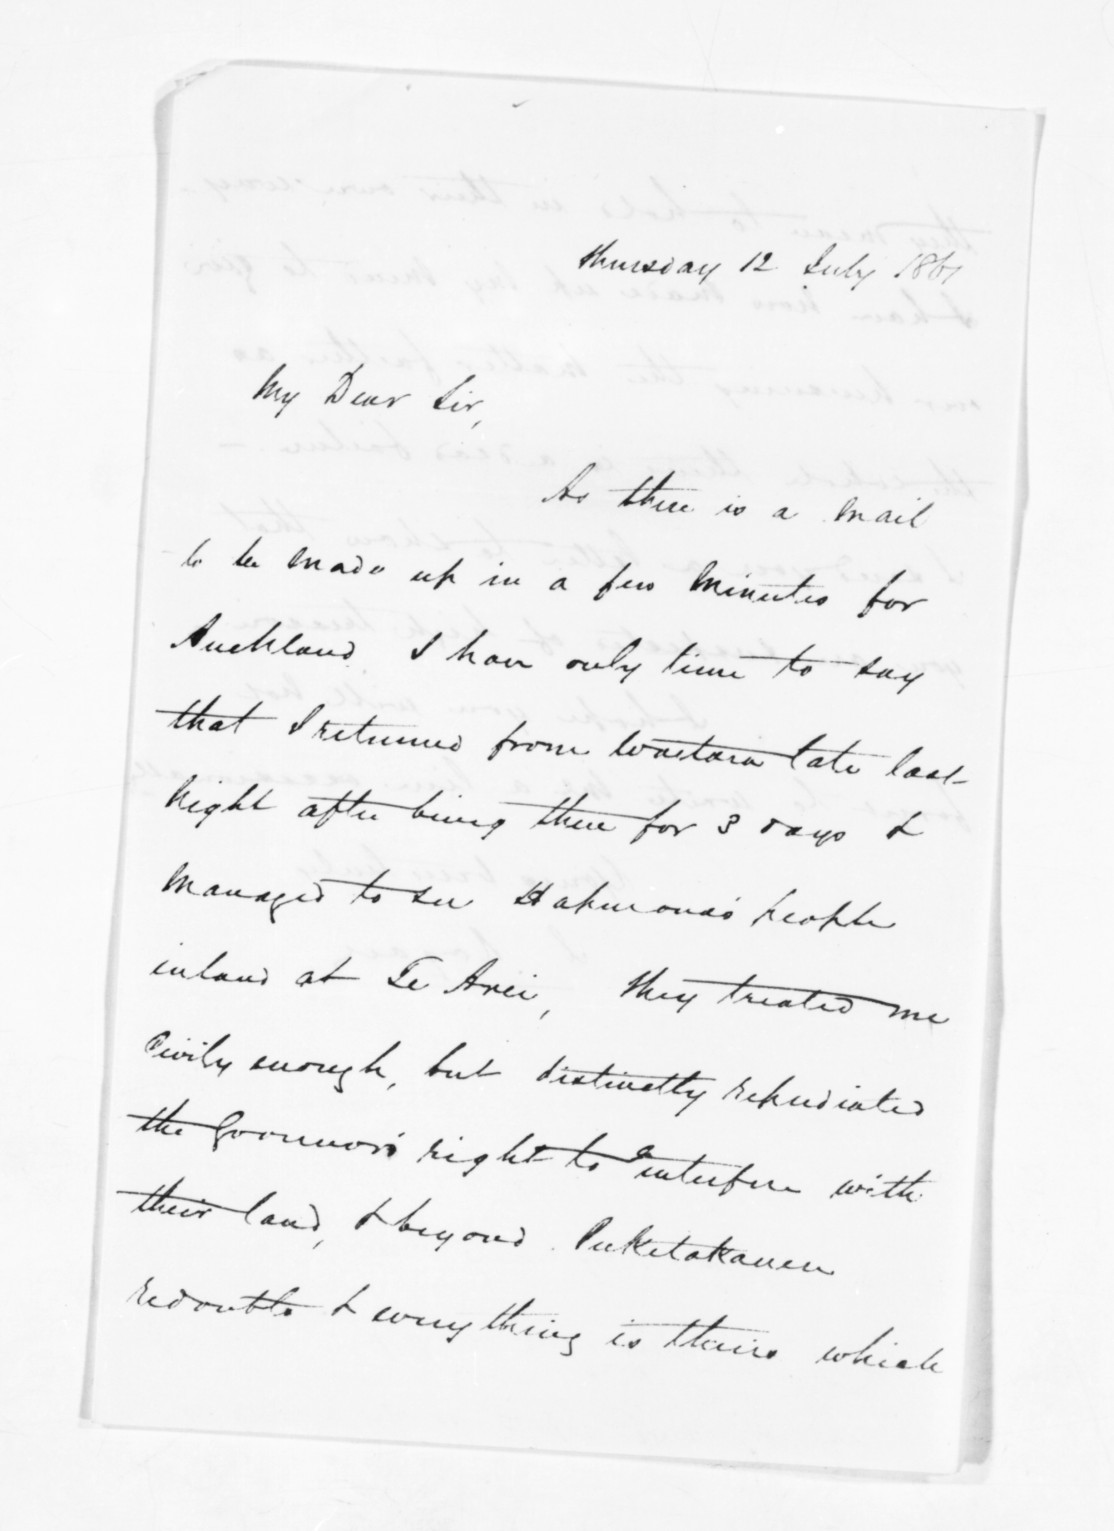 Thursday 12 July 1861
My Dear Sir,
As there is a mail
to be made up in a few minutes for
Auckland I have only time to say
that I returned from Waitara late last
night after being there for 3 days &
managed to see Hapurona's people
inland at Te Arei, they treated me
civily enough, but distinctly repudiated
the Governor's right to interfere with
their land, & beyond Puketakauere
redoubts & everything is theirs which